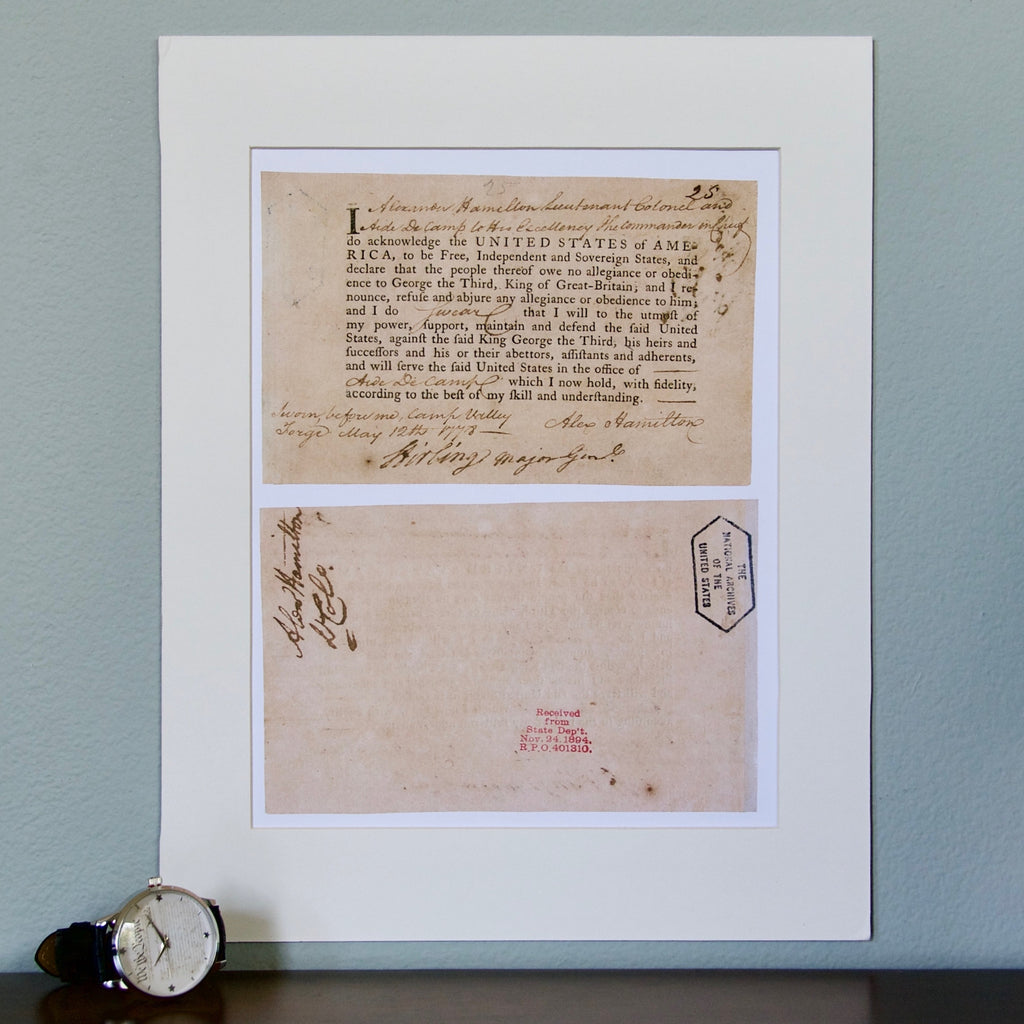 25
25
I Alexander Hamilton Lieutenant Colonel and
Aide De Camp to His Excellency The Commander in Chief
do acknowledge the UNITED STATES of AME-
RICA, to be Free, Independent and Sovereign States, and
declare that the people thereof owe no allegiance or obedi-
ence to George the Third, King of Great-Britain; and I re-
nounce, refuſe and abjure any allegiance or obedience to him;
and I do swear that I will to the utmoſt of
my power, ſupport, maintain and defend the ſaid United
States, againſt the ſaid King George the Third, his heirs and
ſucceſſors and his or their abettors, aſſiſtants and adherents,
and will ſerve the ſaid United States in the office of
Aide De Camp which I now hold, with fidelity,
according to the beſt of my ſkill and underſtanding.
Sworn before me, Camp Valley
Forge May 12th 1778
Alex Hamilton
Stirling Major Genl.
Alex Hamilton
Lt Colo.
THE
NATIONAL ARCHIVES
OF THE
UNITED STATES
Received
from
State Dep't.
Nov. 24. 1894.
R.P.O. 401310.
We the People